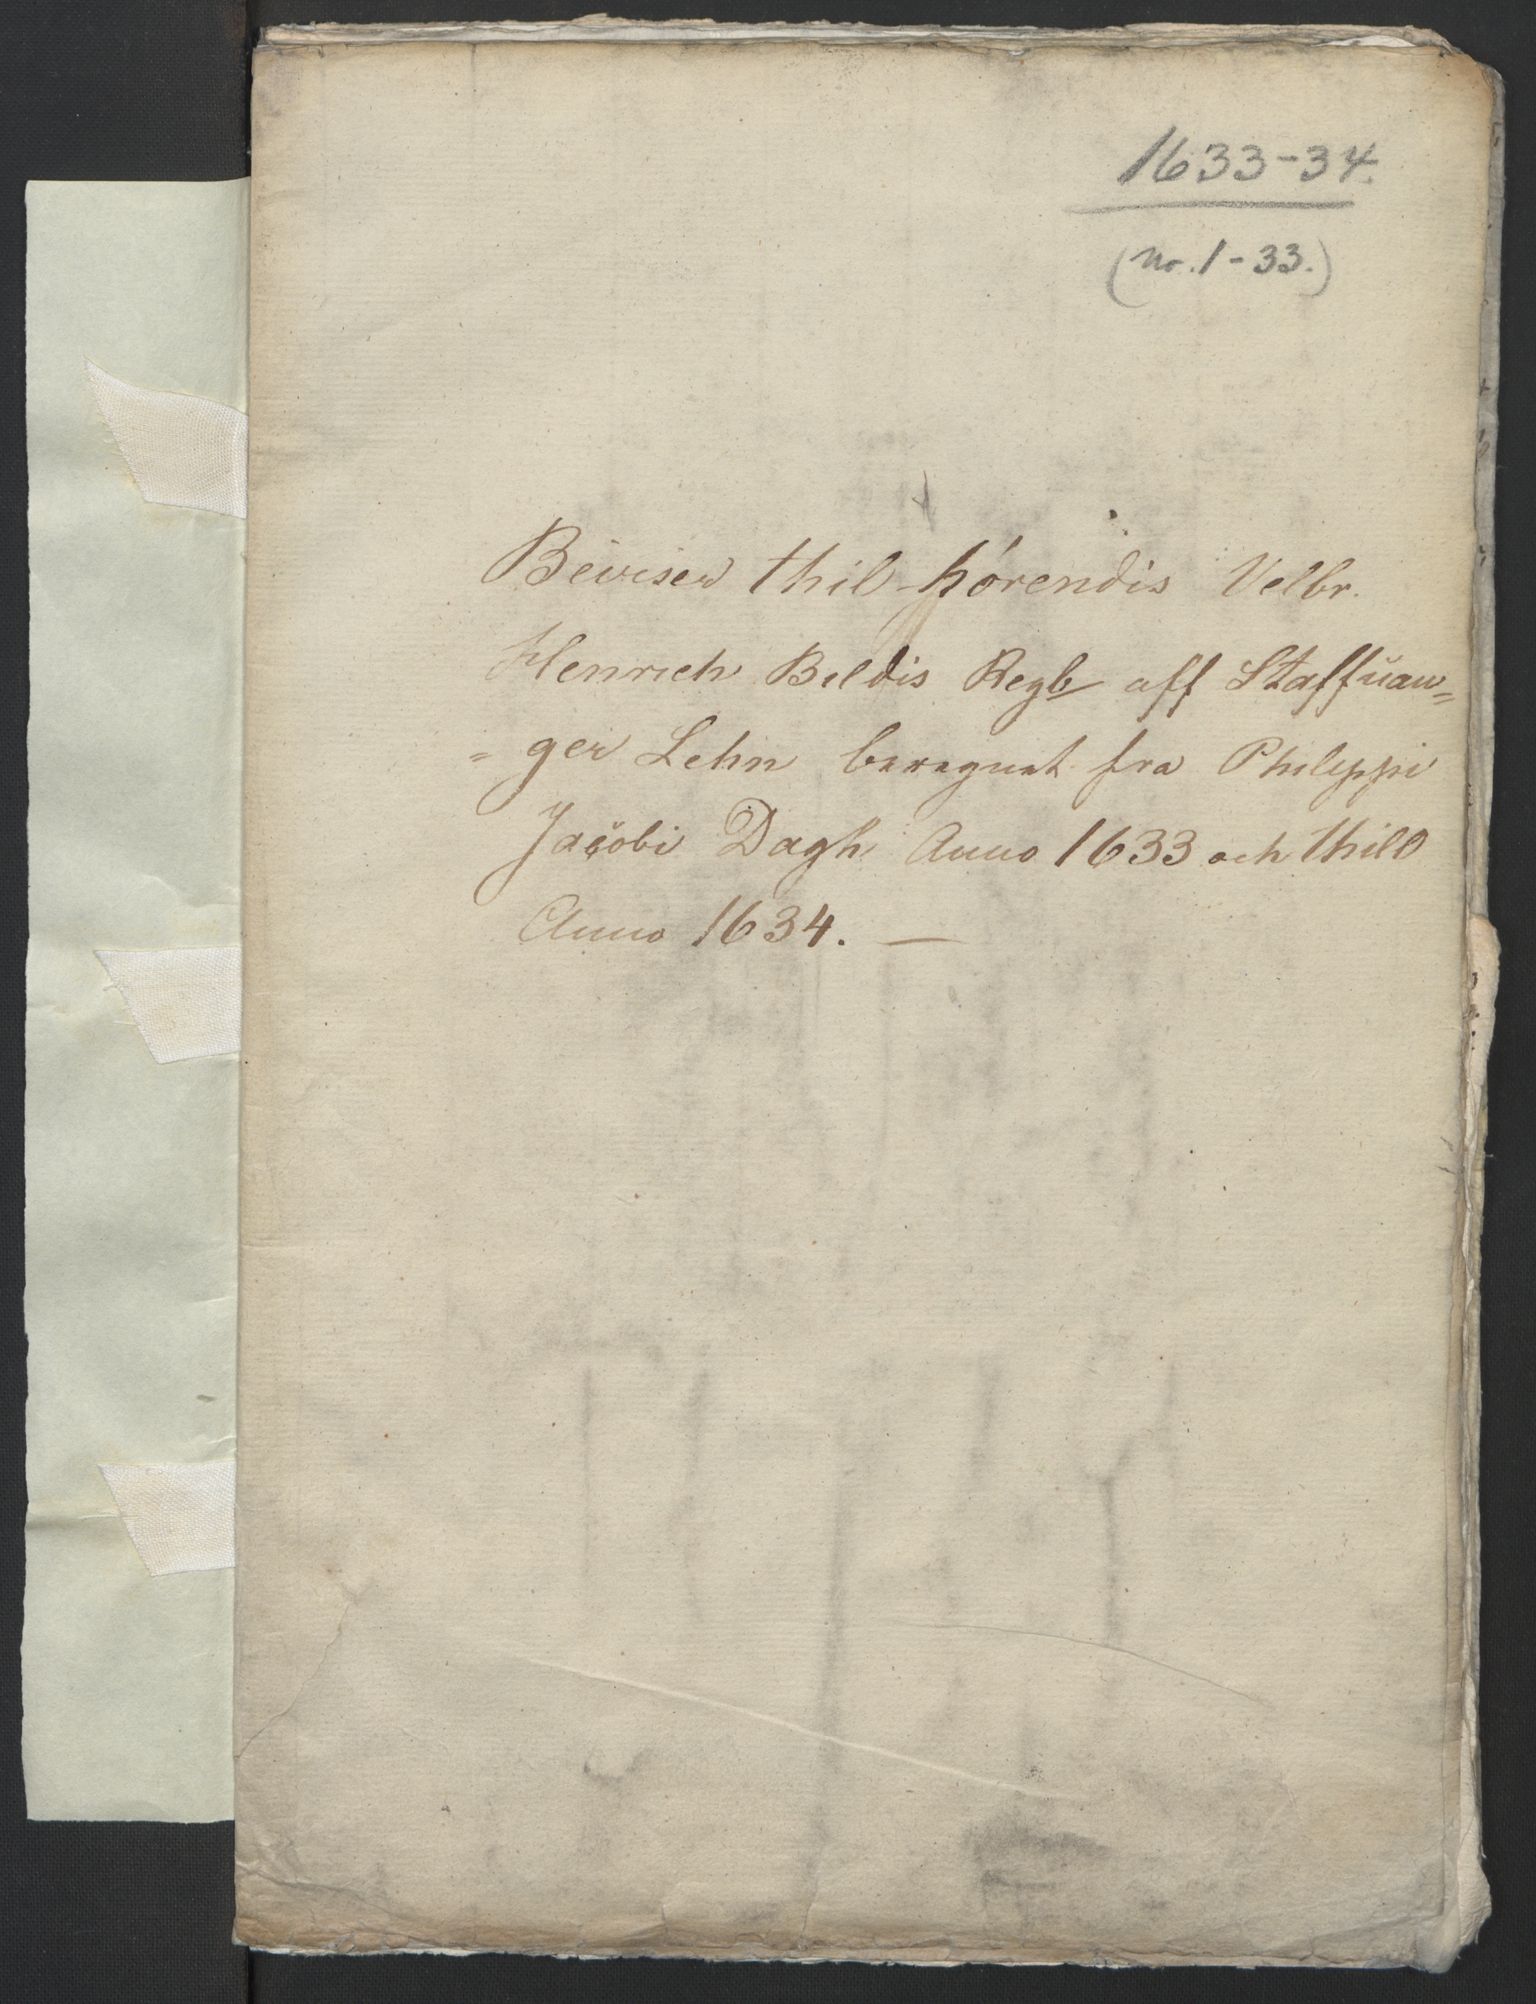 1633-34.
(No. 1-33.)
Beviser thil hörendis Velbr.
Henrich Beldis Regb aff Staffŭan=
=ger Lehn beregnet fra Philippi
Jacobi Dagh Anno 1633 och thill
Anno 1634. —